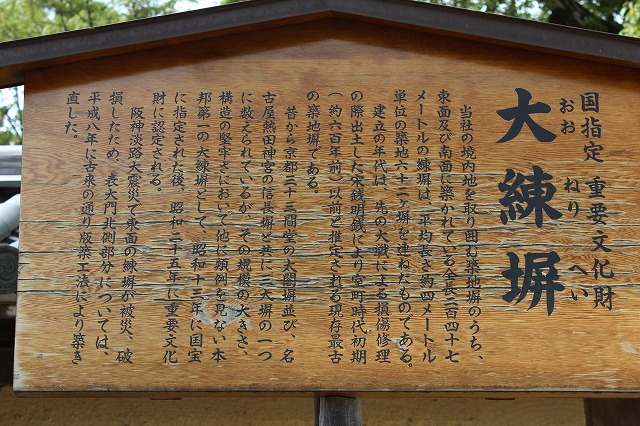 国指定 重要文化財
おお ねり へい
大練塀
当社の境内地を取り囲む築地塀のうち、
東面及び南面に築かれている全長二百四十七
メートルの練塀は、平均長さ約四メートル
単位の築地六十二ヶ塀を連ねたものである。
建立の年代は、先の大戦による損傷修理
の際出土した宋銭明銭により室町時代初期
（約六百年前）以前と推定される現存最古
の築地塀である。
昔から京都三十三間堂の太閤塀並び、名
古屋熱田神宮の信長塀と共に三大塀の一つ
に数えられているが、その規模の大きさ、
構造の堅牢さにおいて他に類例を見ない本
邦第一の大練塀として、昭和十三年に国宝
に指定された後、昭和二十五年に重要文化
財に認定される。
阪神淡路大震災で東面の練塀が被災、破
損したため、表大門北側部分については、
平成八年に古来の通り版築工法により築き
直した。